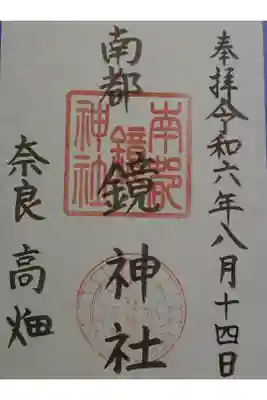 奉拝令和六年八月十四日
南都鏡神社
南都
鏡
神社
奈良高畑